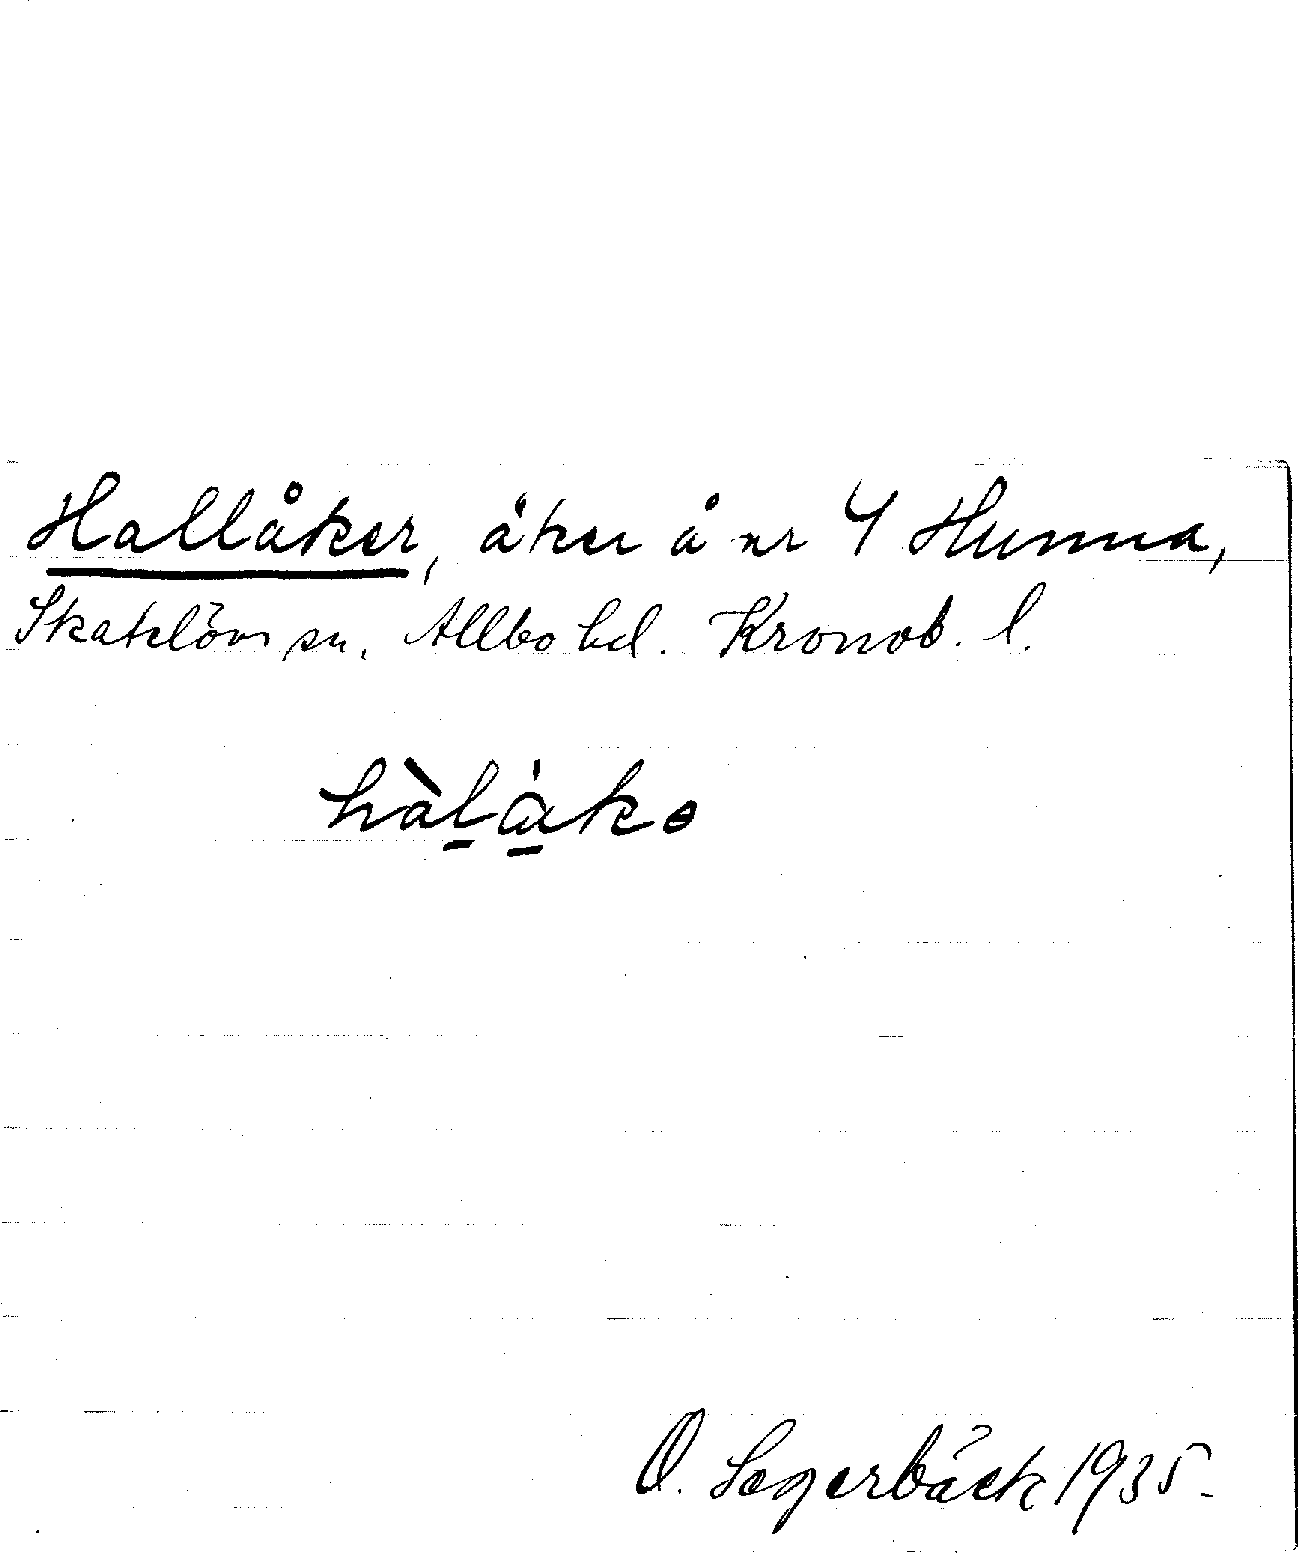 Hallåker, åker å nr 4 Hunna,
Skatelövs sn. Allbo hd. Kronob. l.
O. Segerbäck 1935.